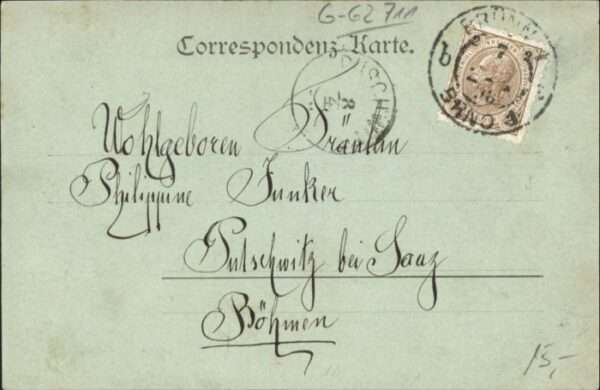 G-62 711
Correspondenz-Karte.
BRÜNN
Wohlgeboren Fräulein
Philippine Junker
Putschwitz bei Saaz
Böhmen
15,-